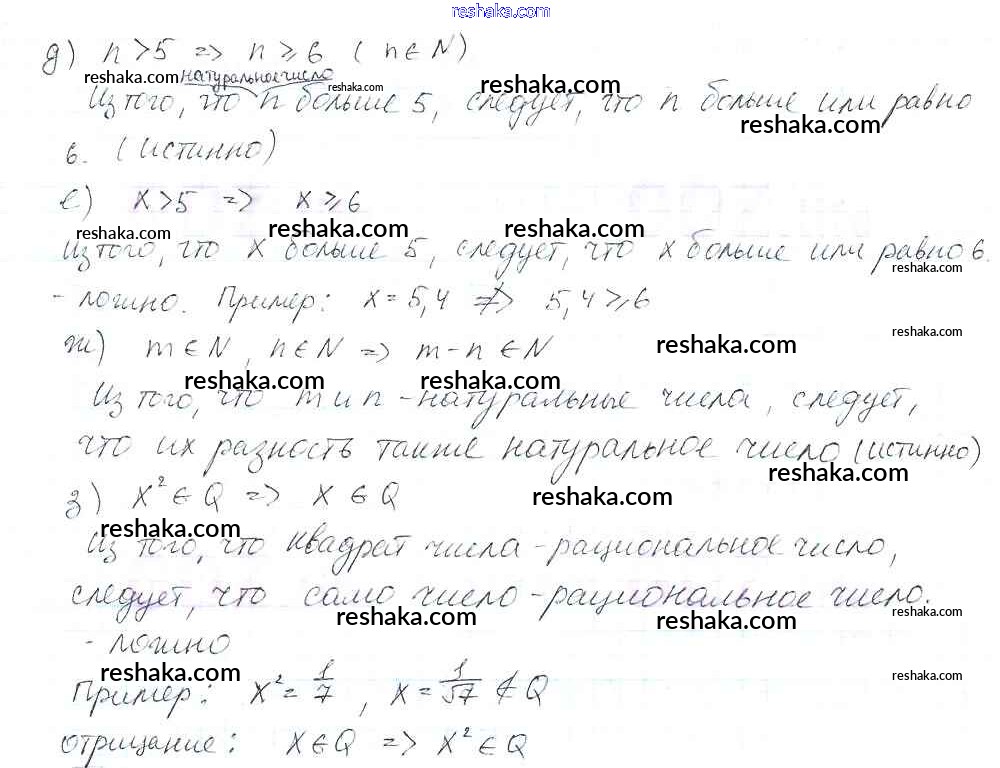 reshaka.com
д) n>5 => n⩾6 (n∈N)
reshaka.com натуральное число reshaka.com reshaka.com
Из того, что n больше 5, следует, что n больше или равно
reshaka.com
6. (истинно)
е) x>5 => x⩾6
reshaka.com reshaka.com reshaka.com
Из того, что x больше 5, следует, что x больше или равно 6.
reshaka.com
- ложно. Пример: x=5,4 ≠> 5,4⩾6
reshaka.com
ж) m∈N, n∈N => m-n∈N
reshaka.com
reshaka.com reshaka.com
Из того, что m и n - натуральные числа, следует,
что их разность также натуральное число (истинно)
reshaka.com
з) x²∈Q => x∈Q
reshaka.com
reshaka.com
Из того, что квадрат числа - рациональное число,
следует, что само число - рациональное число.
reshaka.com reshaka.com reshaka.com
- ложно
reshaka.com reshaka.com
Пример: x²=1/7, x=1/√7 ∉ Q
отрицание: x∈Q => x²∈Q